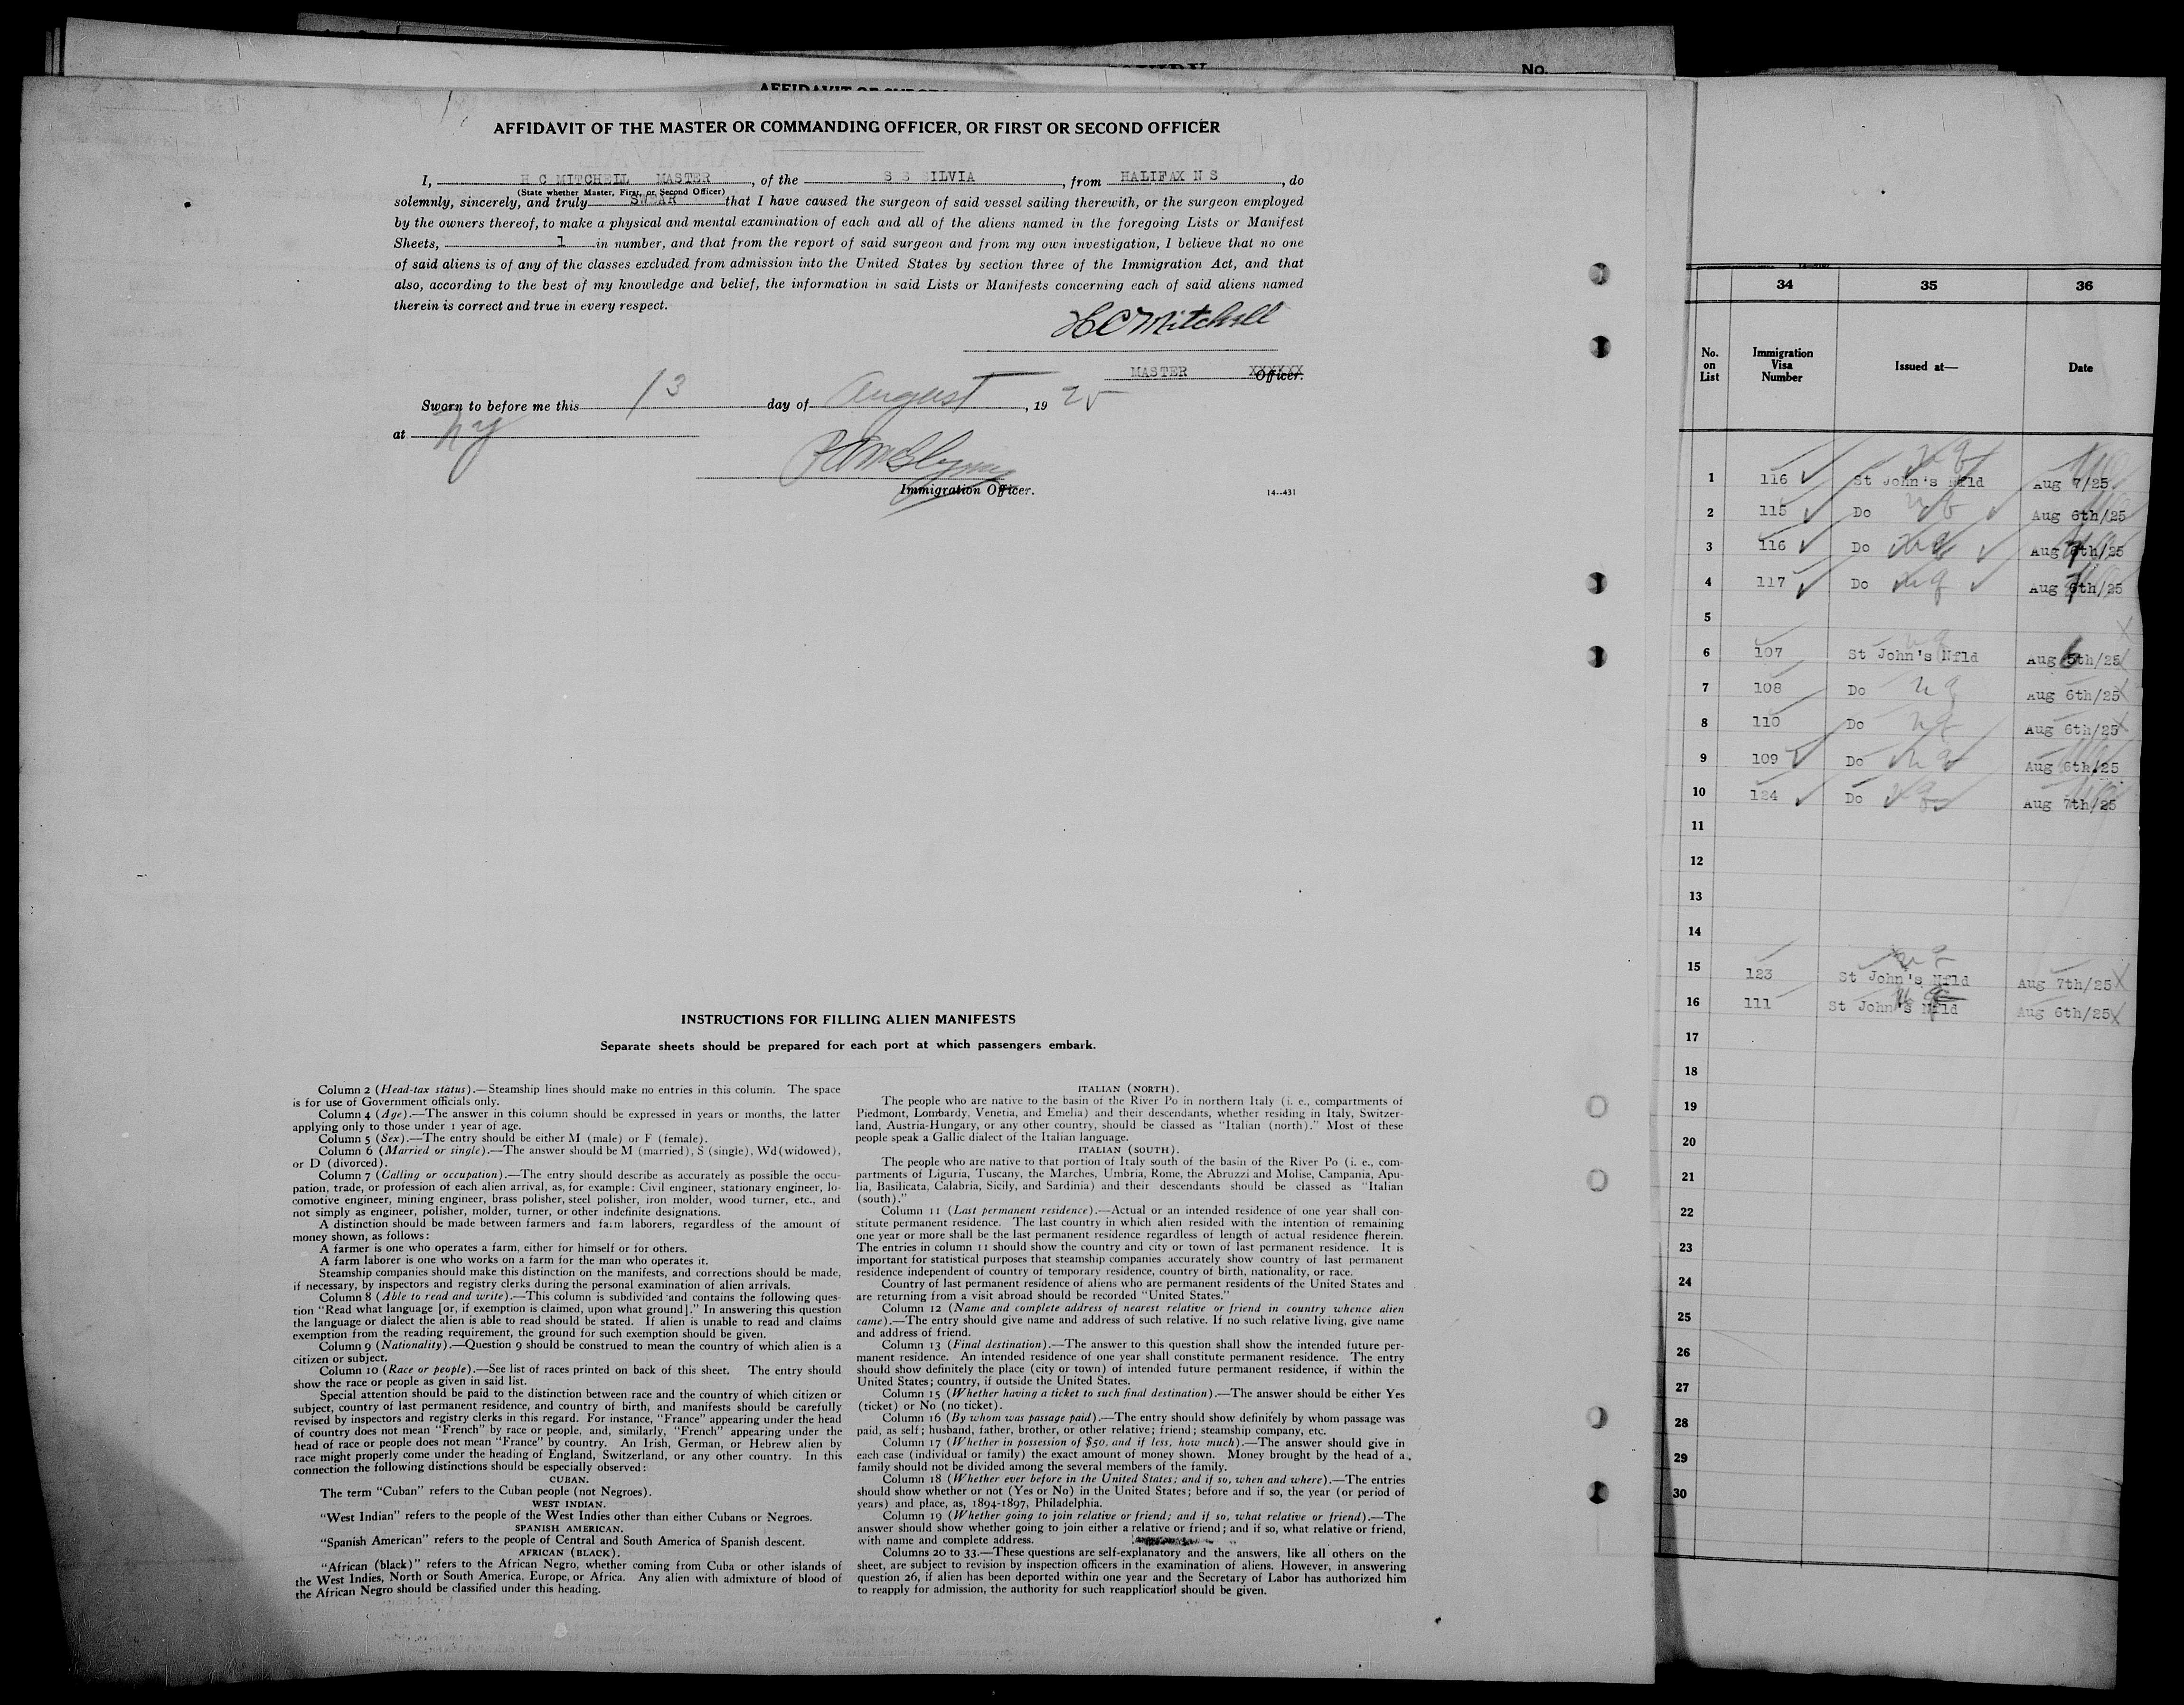 No.
AFFIDAVIT OF THE MASTER OR COMMANDING OFFICER, OR FIRST OR SECOND OFFICER
I, H C MITCHELL MASTER, of the S S SILVIA, from HALIFAX N S, do
(State whether Master, First, or Second Officer)
solemnly, sincerely, and truly SWEAR that I have caused the surgeon of said vessel sailing therewith, or the surgeon employed
by the owners thereof, to make a physical and mental examination of each and all of the aliens named in the foregoing Lists or Manifest
Sheets, 1 in number, and that from the report of said surgeon and from my own investigation, I believe that no one
of said aliens is of any of the classes excluded from admission into the United States by section three of the Immigration Act, and that
also, according to the best of my knowledge and belief, the information in said Lists or Manifests concerning each of said aliens named
therein is correct and true in every respect.
H C Mitchell
MASTER XXXXXX Officer.
Sworn to before me this 13 day of August, 19 25
at NY
Immigration Officer.
14-431
INSTRUCTIONS FOR FILLING ALIEN MANIFESTS
Separate sheets should be prepared for each port at which passengers embark.
Column 2 (Head-tax status).—Steamship lines should make no entries in this column. The space
is for use of Government officials only.
Column 4 (Age).—The answer in this column should be expressed in years or months, the latter
applying only to those under 1 year of age.
Column 5 (Sex).—The entry should be either M (male) or F (female).
Column 6 (Married or single).—The answer should be M (married), S (single), Wd (widowed),
or D (divorced).
Column 7 (Calling or occupation).—The entry should describe as accurately as possible the occu-
pation, trade, or profession of each alien arrival, as, for example: Civil engineer, stationary engineer, lo-
comotive engineer, mining engineer, brass polisher, steel polisher, iron molder, wood turner, etc., and
not simply as engineer, polisher, molder, turner, or other indefinite designations.
A distinction should be made between farmers and farm laborers, regardless of the amount of
money shown, as follows:
A farmer is one who operates a farm, either for himself or for others.
A farm laborer is one who works on a farm for the man who operates it.
Steamship companies should make this distinction on the manifests, and corrections should be made,
if necessary, by inspectors and registry clerks during the personal examination of alien arrivals.
Column 8 (Able to read and write).—This column is subdivided and contains the following ques-
tion "Read what language [or, if exemption is claimed, upon what ground]." In answering this question
the language or dialect the alien is able to read should be stated. If alien is unable to read and claims
exemption from the reading requirement, the ground for such exemption should be given.
Column 9 (Nationality).—Question 9 should be construed to mean the country of which alien is a
citizen or subject.
Column 10 (Race or people).—See list of races printed on back of this sheet. The entry should
show the race or people as given in said list.
Special attention should be paid to the distinction between race and the country of which citizen or
subject, country of last permanent residence, and country of birth, and manifests should be carefully
revised by inspectors and registry clerks in this regard. For instance, "France" appearing under the head
of country does not mean "French" by race or people, and, similarly, "French" appearing under the
head of race or people does not mean "France" by country. An Irish, German, or Hebrew alien by
race might properly come under the heading of England, Switzerland, or any other country. In this
connection the following distinctions should be especially observed:
CUBAN.
The term "Cuban" refers to the Cuban people (not Negroes).
WEST INDIAN.
"West Indian" refers to the people of the West Indies other than either Cubans or Negroes.
SPANISH AMERICAN.
"Spanish American" refers to the people of Central and South America of Spanish descent.
AFRICAN (BLACK).
"African (black)" refers to the African Negro, whether coming from Cuba or other islands of
the West Indies, North or South America, Europe, or Africa. Any alien with admixture of blood of
the African Negro should be classified under this heading.
ITALIAN (NORTH).
The people who are native to the basin of the River Po in northern Italy (i. e., compartments of
Piedmont, Lombardy, Venetia, and Emelia) and their descendants, whether residing in Italy, Switzer-
land, Austria-Hungary, or any other country, should be classed as "Italian (north)." Most of these
people speak a Gallic dialect of the Italian language.
ITALIAN (SOUTH).
The people who are native to that portion of Italy south of the basin of the River Po (i. e., com-
partments of Liguria, Tuscany, the Marches, Umbria, Rome, the Abruzzi and Molise, Campania, Apu-
lia, Basilicata, Calabria, Sicily, and Sardinia) and their descendants should be classed as "Italian
(south)."
Column 11 (Last permanent residence).—Actual or an intended residence of one year shall con-
stitute permanent residence. The last country in which alien resided with the intention of remaining
one year or more shall be the last permanent residence regardless of length of actual residence therein.
The entries in column 11 should show the country and city or town of last permanent residence. It is
important for statistical purposes that steamship companies accurately show country of last permanent
residence independent of country of temporary residence, country of birth, nationality, or race.
Country of last permanent residence of aliens who are permanent residents of the United States and
are returning from a visit abroad should be recorded "United States."
Column 12 (Name and complete address of nearest relative or friend in country whence alien
came).—The entry should give name and address of such relative. If no such relative living, give name
and address of friend.
Column 13 (Final destination).—The answer to this question shall show the intended future per-
manent residence. An intended residence of one year shall constitute permanent residence. The entry
should show definitely the place (city or town) of intended future permanent residence, if within the
United States; country, if outside the United States.
Column 15 (Whether having a ticket to such final destination).—The answer should be either Yes
(ticket) or No (no ticket).
Column 16 (By whom was passage paid).—The entry should show definitely by whom passage was
paid, as self; husband, father, brother, or other relative; friend; steamship company, etc.
Column 17 (Whether in possession of $50, and if less, how much).—The answer should give in
each case (individual or family) the exact amount of money shown. Money brought by the head of a
family should not be divided among the several members of the family.
Column 18 (Whether ever before in the United States; and if so, when and where).—The entries
should show whether or not (Yes or No) in the United States; before and if so, the year (or period of
years) and place, as, 1894-1897, Philadelphia.
Column 19 (Whether going to join relative or friend; and if so, what relative or friend).—The
answer should show whether going to join either a relative or friend; and if so, what relative or friend,
with name and complete address.
Columns 20 to 33.—These questions are self-explanatory and the answers, like all others on the
sheet, are subject to revision by inspection officers in the examination of aliens. However, in answering
question 26, if alien has been deported within one year and the Secretary of Labor has authorized him
to reapply for admission, the authority for such reapplication should be given.
34 35 36
No. on List Immigration Visa Number Issued at— Date
1 116 St John's Nfld Aug 7/25
2 115 Do Aug 6th/25
3 116 Do Aug 7th/25
4 117 Do Aug 7th/25
5
6 107 St John's Nfld Aug 6th/25
7 108 Do nq Aug 6th/25
8 110 Do nq Aug 6th/25
9 109 Do nq Aug 6th/25
10 124 Do Aug 7th/25
11
12
13
14
15 123 St John's Nfld Aug 7th/25
16 111 St John's Nfld Aug 6th/25
17
18
19
20
21
22
23
24
25
26
27
28
29
30